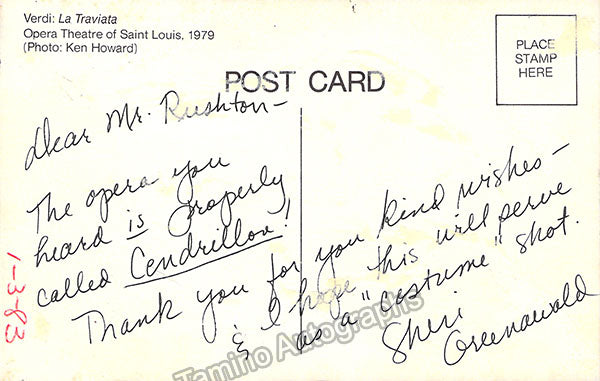 Verdi: La Traviata
Opera Theatre of Saint Louis, 1979
(Photo: Ken Howard)
PLACE
STAMP
HERE
POST CARD
Dear Mr. Rushton—
The opera you
heard is properly
called Cendrillon!
Thank you for you kind wishes—
& I hope this will serve
as a "costume" shot.
Sheri
Greenawald
1-3-83
Tamino Autographs